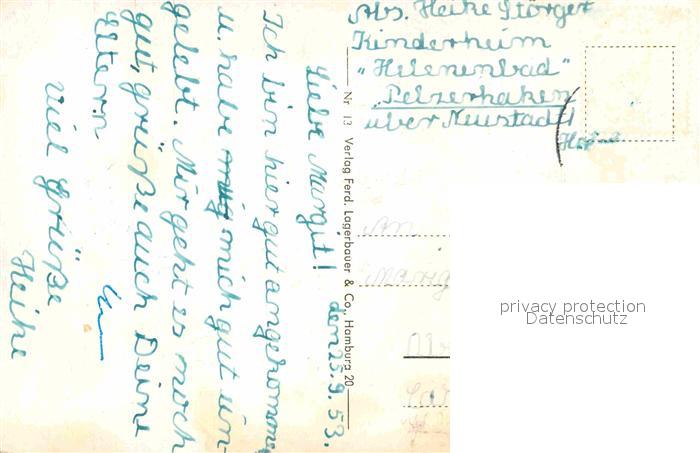 den 25. 9. 53.
Liebe Margit!
Ich bin hier gut angekommen
u. habe mich gut ein-
gelebt. Mir geht es noch
gut, grüße auch Deine
Eltern
Viel Grüße
Heike
Nr. 13 Verlag Ferd. Lagerbauer & Co., Hamburg 20
Abs. Heike Störger
Kinderheim
"Helenenbad"
Pelzerhaken
über Neustadt
An
privacy protection
Datenschutz